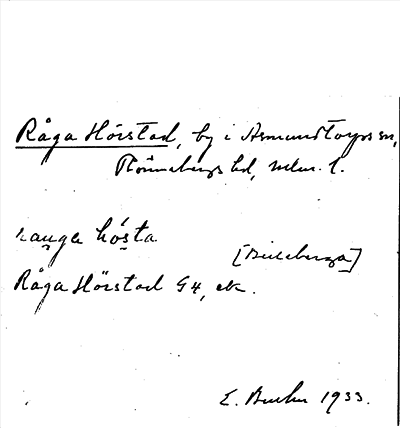 Råga Hörstad, by i Asmundtorps sn,
Rönnebergs hd, mlm. l.
rauga hósta
[Billeberga]
Råga Hörstad G4, ek.
E. 1933.